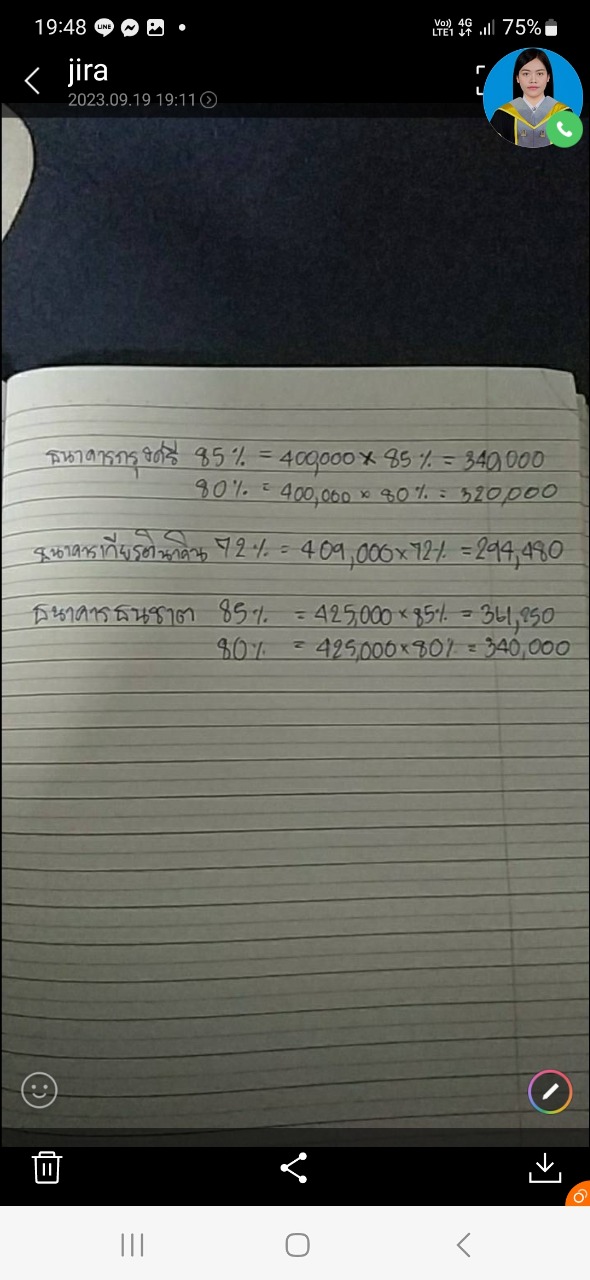 19:48
Vo)) 4G
LTE1
75%
jira
2023.09.19 19:11
ธนาคารกรุงศรี 85% = 400,000 × 85% = 340,000
80% = 400,000 × 80% = 320,000
ธนาคารเกียรตินาคิน 72% = 409,000×72% = 294,480
ธนาคารธนชาต 85% = 425,000×85% = 361,250
80% = 425,000×80% = 340,000